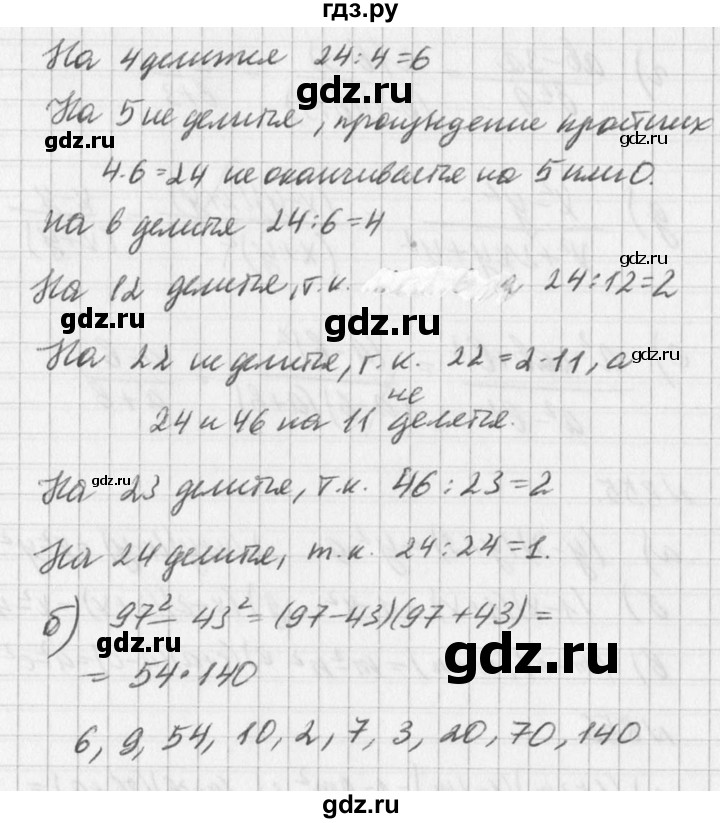 гдз.ру
На 4 делится 24:4=6
gdz.ru
На 5 не делится, произведение простых
gdz.ru
gdz.ru
4·6=24 не оканчивается на 5 или 0.
на 6 делится 24:6=4
gdz.ru
На 12 делится, т.к. 24:12=2
gdz.ru
gdz.ru
На 22 не делится, т.к. 22=2·11, а
gdz.ru
не
24 и 46 на 11 делятся.
gdz.ru
На 23 делится, т.к. 46:23=2
gdz.ru
На 24 делится, т.к. 24:24=1.
б) 97²-43²=(97-43)(97+43)=
gdz.ru
gdz.ru
= 54·140
6, 9, 54, 10, 2, 7, 3, 20, 70, 140
gdz.ru
gdz.ru
gdz.ru